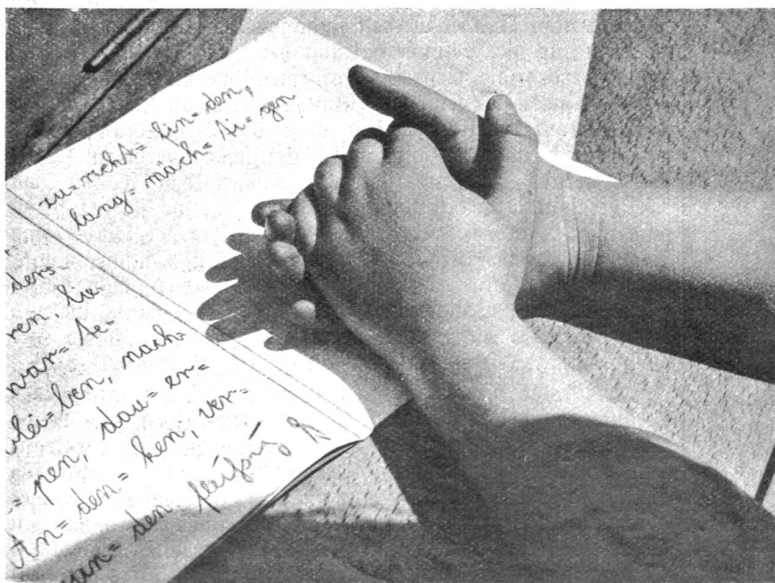 zu=recht= fin=den,
lang= mäch= ti= gen
ders-
ren, lie-
war= te=
blei= ben, nach=
= pen, dau= er=
An= den= ken, ver=
den fleißig